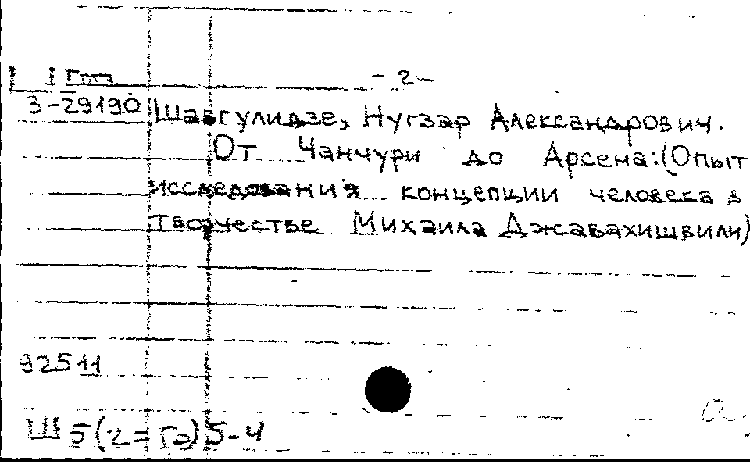 - 2 -
3-29190
Шавгулидзе, Нугзар Александрович.
От Чанчури до Арсена: (Опыт
исследования концепции человека в
творчестве Михаила Джавахишвили)
92511
Ш5(2=Гэ)5-4